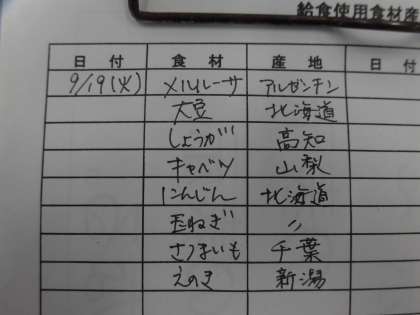 給食使用食材産
日付 食材 産地 日付
9/19(火) メルルーサ アルゼンチン
大豆 北海道
しょうが 高知
キャベツ 山梨
にんじん 北海道
玉ねぎ 〃
さつまいも 千葉
えのき 新潟